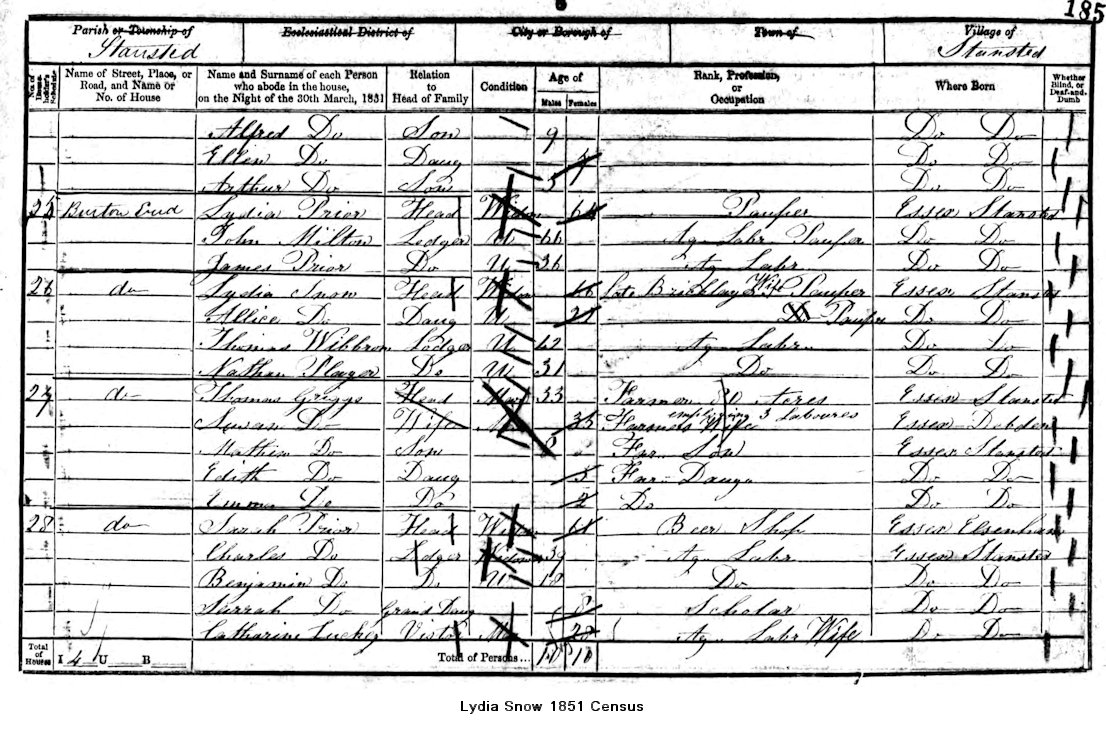 185
Parish or Township of Ecclesiastical District of City or Borough of Town of Village of
Stansted Stansted
Name of Street, Place, or Road, and Name or No. of House Name and Surname of each Person who abode in the house, on the Night of the 30th March, 1851 Relation to Head of Family Condition Age of Males Females Rank, Profession, or Occupation Where Born Whether Blind, or Deaf-and-Dumb
Alfred Do Son 9 Do Do
Ellen Do Daug Do Do
Arthur Do Son 3 Do Do
25 Burton End Lydia Prior Head Widow Pauper Essex Stansted
John Milton Lodger U 66 Ag Labr Pauper Do Do
James Prior Do U 36 Ag Labr Do Do
26 do Lydia Snow Head Widow Late Bricklay Wife Pauper Essex Stansted
Allice Do Daug U 21 Do Pauper Do Do
Thomas Lodger U 62 Ag Labr Do Do
Nathan Player Do U 31 Do Do Do
27 do Thomas Griggs Head Mar 33 Farmer 30 Acres Essex Stansted
employing 3 laboures
Susan Do Wife 35 Farmers Wife Essex Debden
Do Son 8 Far Son Essex Stansted
Edith Do Daug 5 Far Daug Do Do
Emma Do Do 2 Do Do Do
28 do Sarah Prior Head Widow Beer Shop Essex Elsenham
Charles Do Lodger 39 Ag Labr Essex Stansted
Benjamin Do Do U 18 Do Do Do
Sarrah Do Grand Daug 8 Scholar Do Do
Catharine Visitor Ag Labr Wife Do Do
Total of Houses I 4 U B Total of Persons... 10 10
Lydia Snow 1851 Census